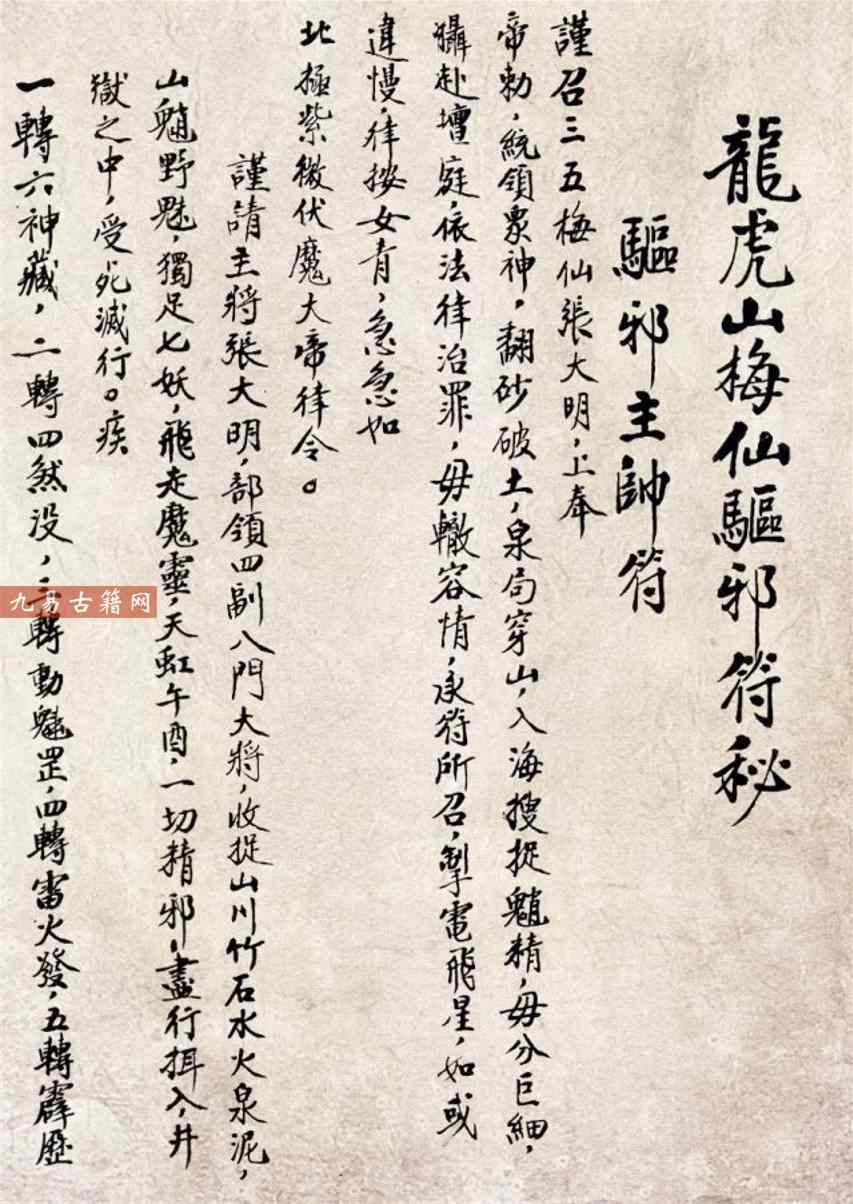 龍虎山梅仙驅邪符秘
驅邪主帥符
謹召三五梅仙張大明，上奉
帝勅，統領衆神，翻砂破土，泉局穿山，入海搜捉魈精，毋分巨細，
攝赴壇庭，依法律治罪，毋轍容情，承符所召，掣電飛星，如或
違慢，律按女青，急急如
北極紫微伏魔大帝律令。
謹請主將張大明，部領四副八門大將，收捉山川竹石水火泉泥，
山魈野魅，獨足七妖，飛走魔靈，天虹午酉，一切精邪，盡行揖入，井
獄之中，受死滅行。疾
一轉六神藏，二轉四煞没，三轉動魁罡，四轉雷火發，五轉霹歷
九易古籍网